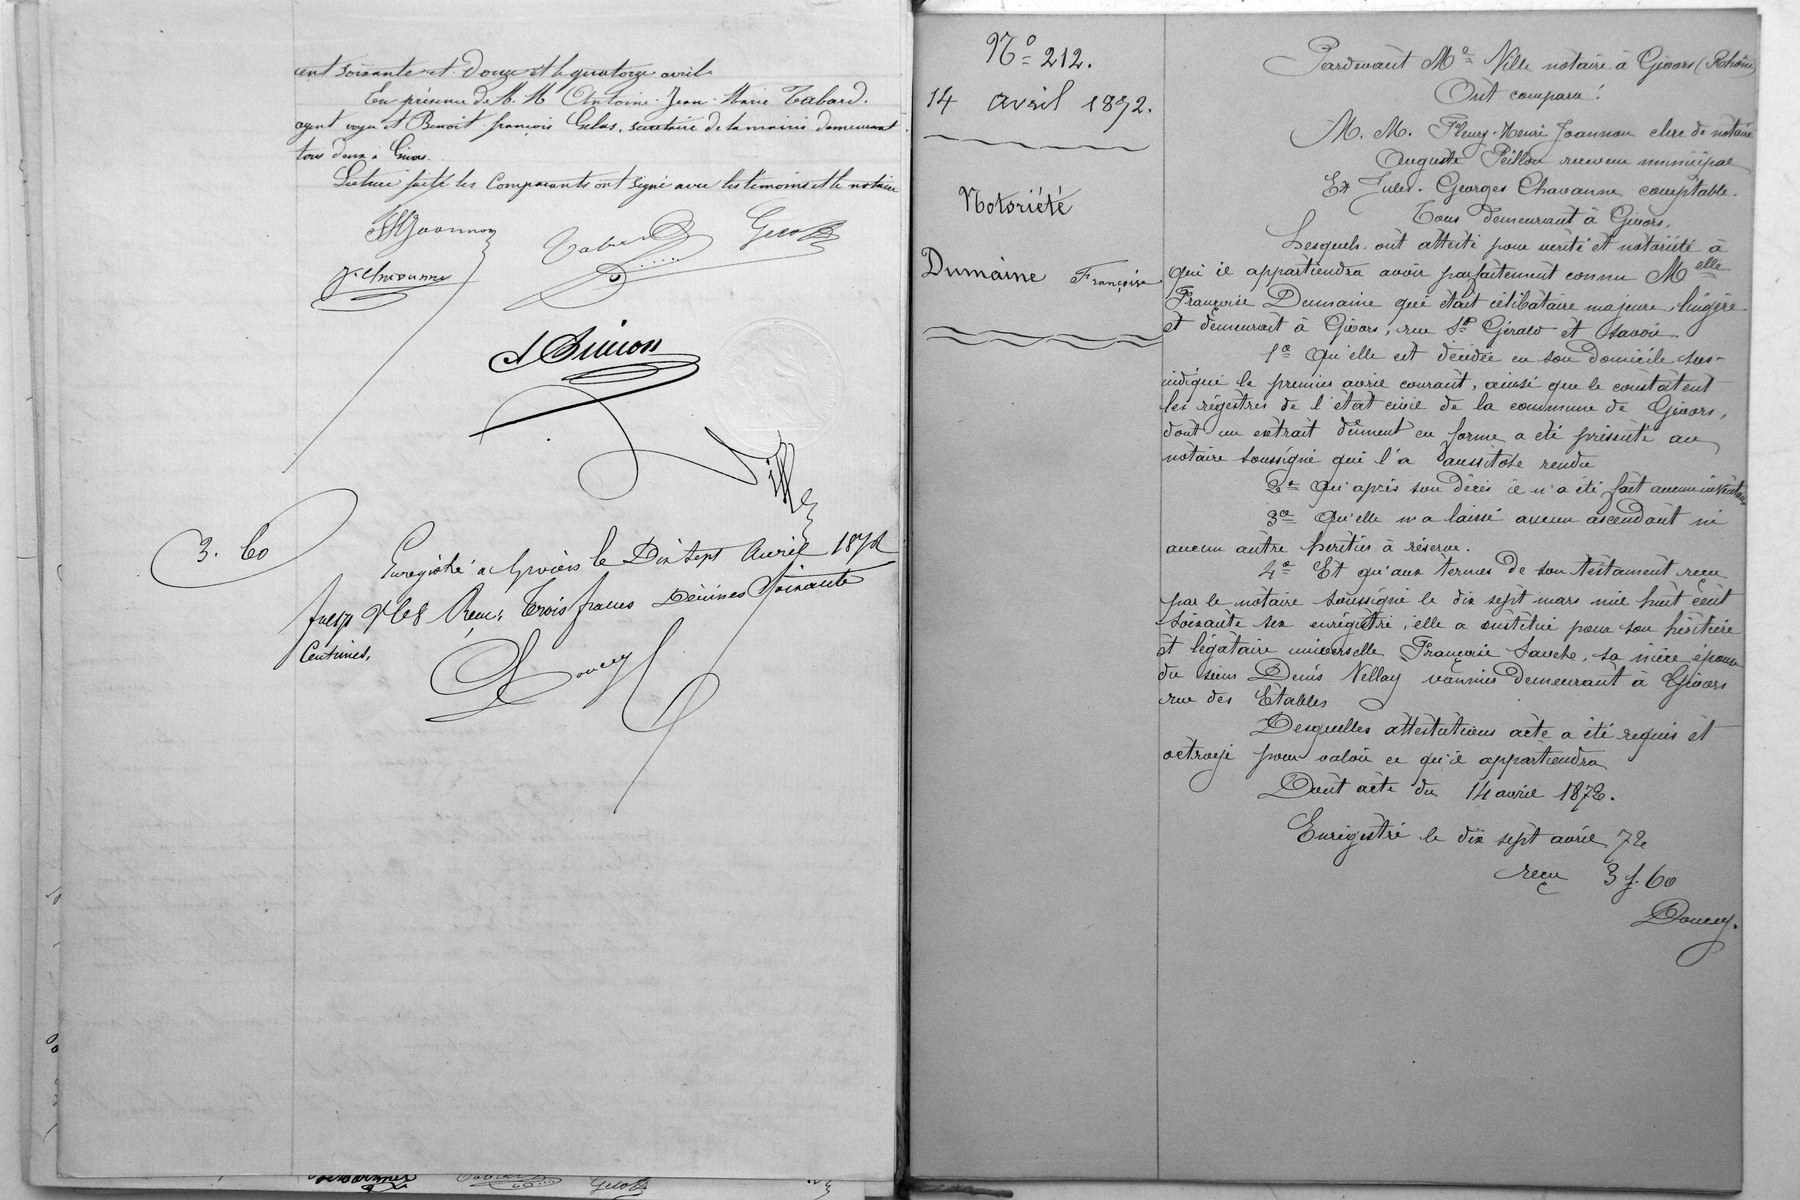 cent soixante et Douze et le quatorze avril
En présence de M. M Antoine-Jean-Marie Tabard.
agent voyer et Benoit françois Gelas, secrétaire de la mairie demeurant
tous deux à Givors.
Lecture faite les Comparants ont signé avec les témoins et le notaire
FHJoannon
Tabard
Gelas
J. Chavanne
Ville
3. 60
Enregistré à Givors le Dix sept Avril 1872
Reçu: Trois francs Décimes Soixante
Centimes,
Doucey
No 212.
14 avril 1872.
Notoriété
Dumaine Françoise
Pardevant Me Ville notaire à Givors (Rhône)
Ont comparu:
M. M. Fleury-Henri Joannon clerc de notaire
Auguste Peillon receveur municipal
Et Jules-Georges Chavanne comptable.
Tous demeurant à Givors.
Lesquels ont attesté pour vérité et notoriété à
qui il appartiendra avoir parfaitement connu Melle
Françoise Dumaine qui était célibataire majeure, lingère
et demeurait à Givors, rue St Gérald et savoir.
1o Qu'elle est décédée en son domicile sus-
indiqué le premier avril courant, ainsi que le constatent
les régistres de l'état civil de la commune de Givors,
dont un extrait dûment en forme a été présenté au
notaire soussigné qui l'a aussitôt rendu
2o Qu'après son décès il n'a été fait aucun inventaire
3o Qu'elle n'a laissé aucun ascendant ni
aucun autre héritier à réserve.
4o Et qu'aux termes de son testament reçu
par le notaire soussigné le dix sept mars mil huit cent
soixante six enrégistré, elle a institué pour son héritière
et légataire universelle Françoise Sauche, sa mère épouse
du sieur Denis Vellay vannier demeurant à Givors
rue des Etables
Desquelles attestations acte a été requis et
octroyé pour valoir ce qu'il appartiendra
Dont acte du 14 avril 1872.
Enrégistré le dix sept avril 72
reçu 3 f. 60
Doucey.